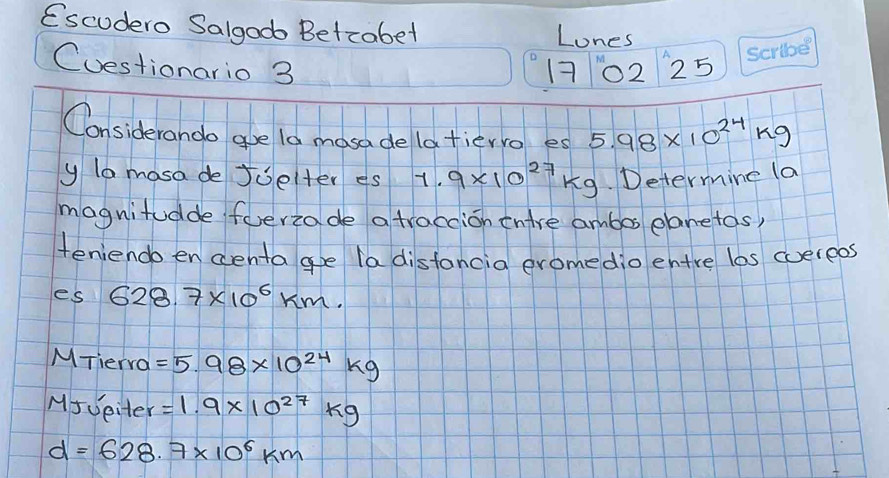 Escudero Salgado Betzabet
Lunes
Cuestionario 3
D 17 M 02 A 25
Scribe
Considerando que la masa de la tierra es 5.98×10²⁴ kg
y la masa de Júpiter es 1.9×10²⁷ kg. Determine la
magnitud de fuerza de atracción entre ambos planetas,
teniendo en cuenta que la distancia promedio entre los cuerpos
es 628.7×10⁶ Km.
MTierra = 5.98×10²⁴ kg
MJúpiter = 1.9×10²⁷ kg
d = 628.7×10⁶ Km